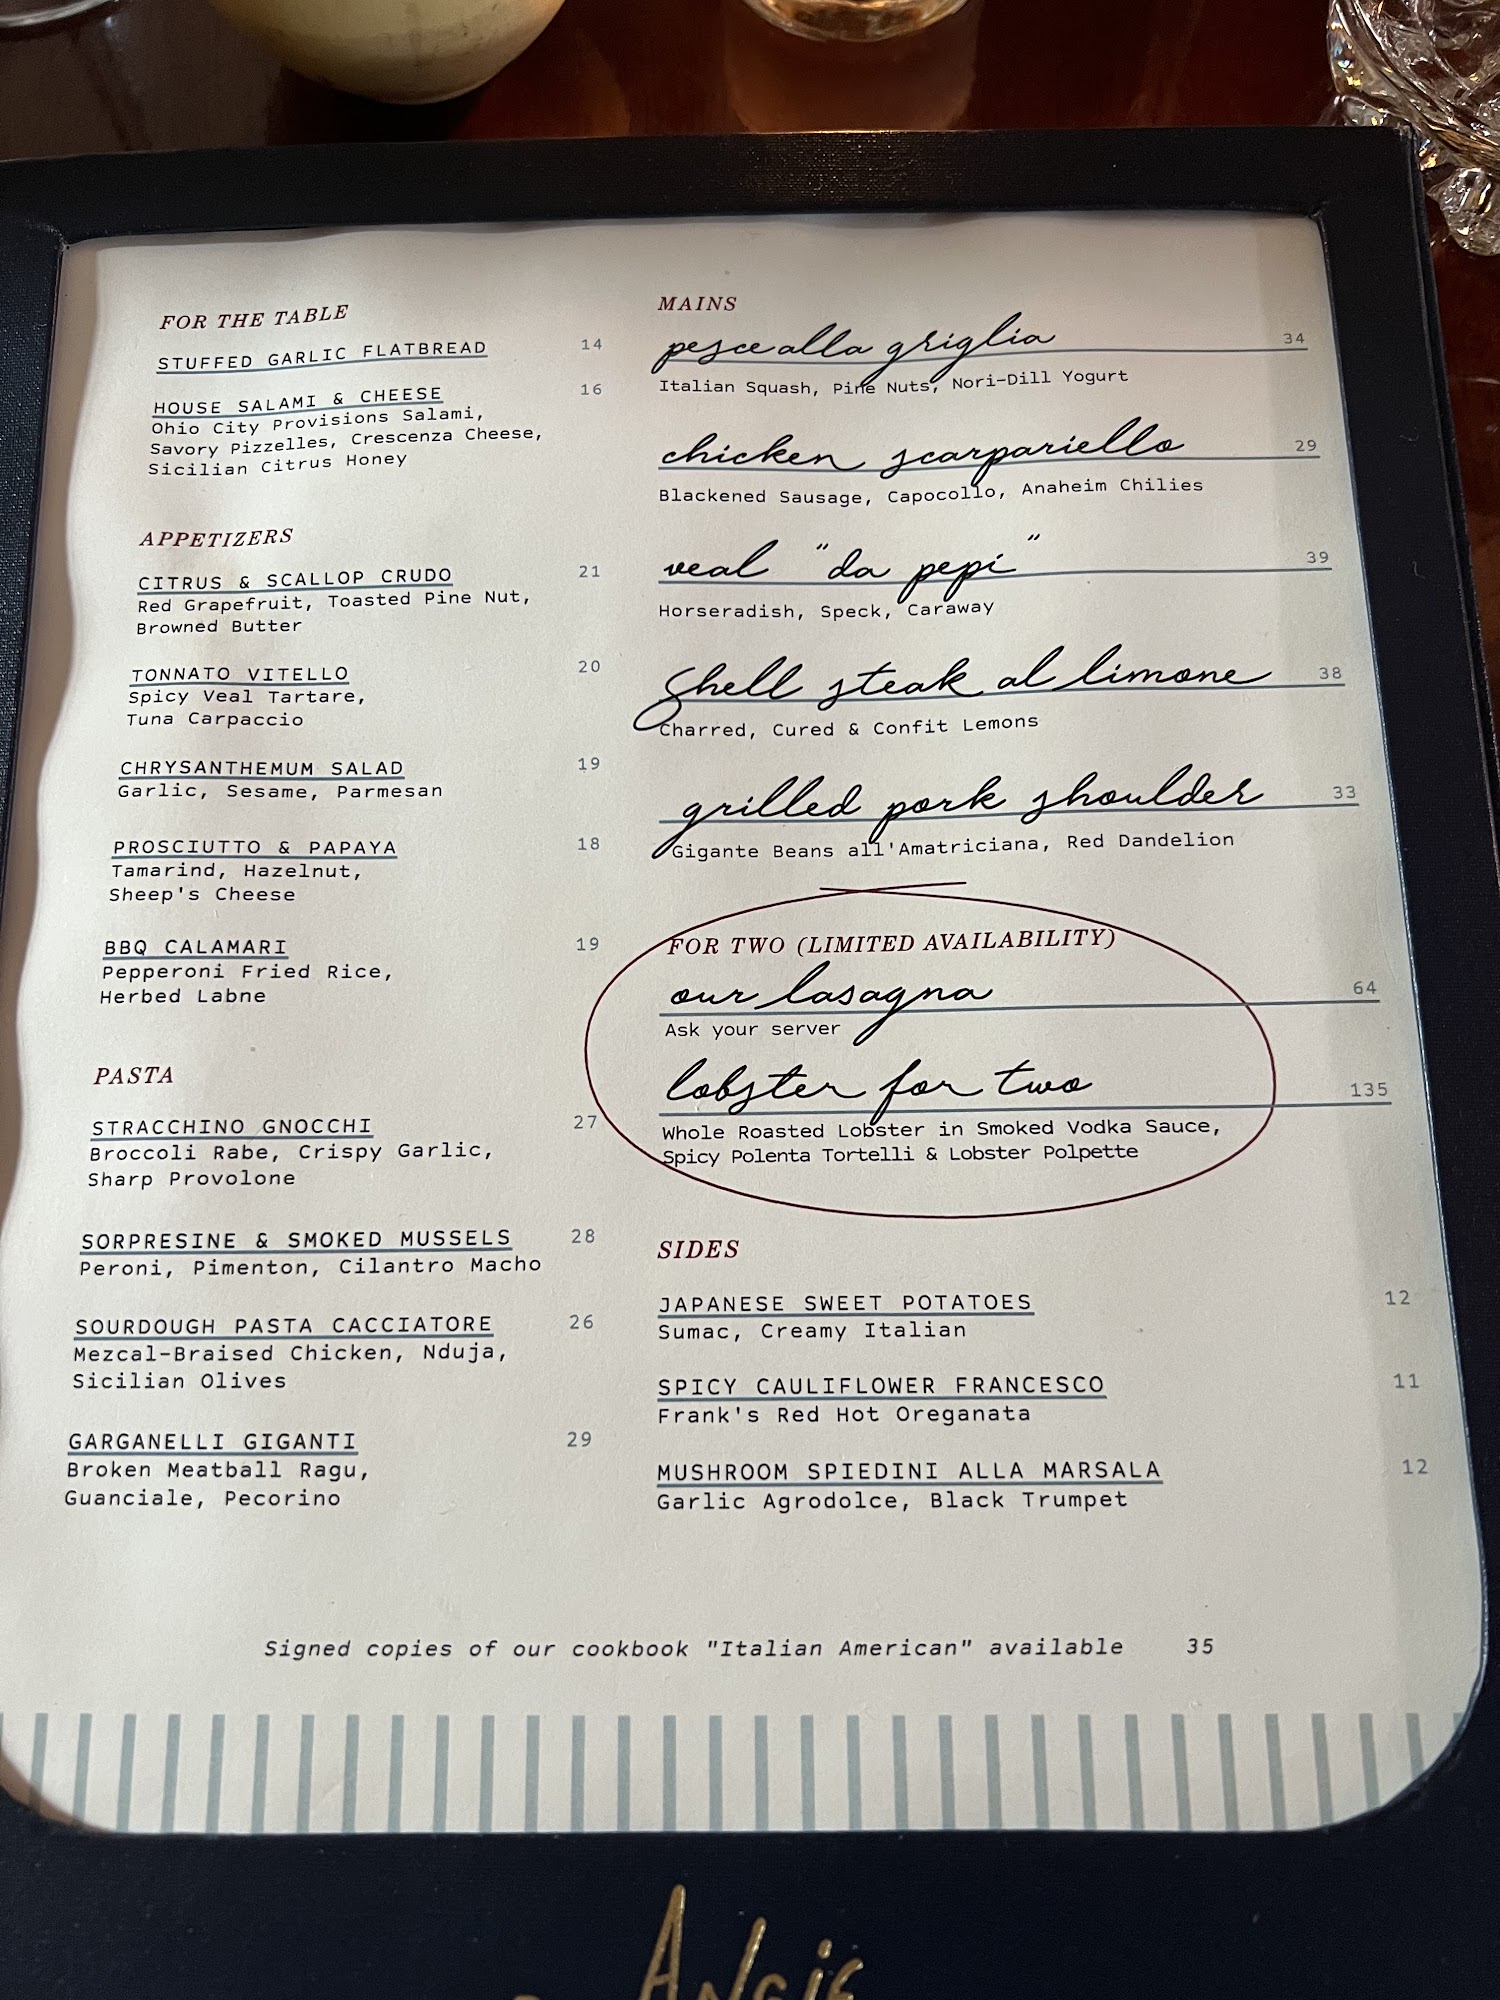 FOR THE TABLE
STUFFED GARLIC FLATBREAD 14
HOUSE SALAMI & CHEESE 16
Ohio City Provisions Salami,
Savory Pizzelles, Crescenza Cheese,
Sicilian Citrus Honey
APPETIZERS
CITRUS & SCALLOP CRUDO 21
Red Grapefruit, Toasted Pine Nut,
Browned Butter
TONNATO VITELLO 20
Spicy Veal Tartare,
Tuna Carpaccio
CHRYSANTHEMUM SALAD 19
Garlic, Sesame, Parmesan
PROSCIUTTO & PAPAYA 18
Tamarind, Hazelnut,
Sheep's Cheese
BBQ CALAMARI 19
Pepperoni Fried Rice,
Herbed Labne
PASTA
STRACCHINO GNOCCHI 27
Broccoli Rabe, Crispy Garlic,
Sharp Provolone
SORPRESINE & SMOKED MUSSELS 28
Peroni, Pimenton, Cilantro Macho
SOURDOUGH PASTA CACCIATORE 26
Mezcal-Braised Chicken, Nduja,
Sicilian Olives
GARGANELLI GIGANTI 29
Broken Meatball Ragu,
Guanciale, Pecorino
MAINS
pesce alla griglia 34
Italian Squash, Pine Nuts, Nori-Dill Yogurt
chicken scarpariello 29
Blackened Sausage, Capocollo, Anaheim Chilies
veal "da pepi" 39
Horseradish, Speck, Caraway
Shell steak al limone 38
Charred, Cured & Confit Lemons
grilled pork shoulder 33
Gigante Beans all'Amatriciana, Red Dandelion
FOR TWO (LIMITED AVAILABILITY)
our lasagna 64
Ask your server
lobster for two 135
Whole Roasted Lobster in Smoked Vodka Sauce,
Spicy Polenta Tortelli & Lobster Polpette
SIDES
JAPANESE SWEET POTATOES 12
Sumac, Creamy Italian
SPICY CAULIFLOWER FRANCESCO 11
Frank's Red Hot Oreganata
MUSHROOM SPIEDINI ALLA MARSALA 12
Garlic Agrodolce, Black Trumpet
Signed copies of our cookbook "Italian American" available 35
Angie